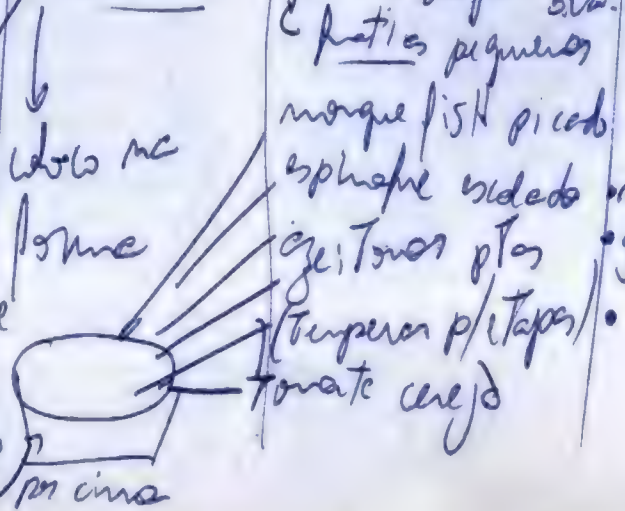 coloco na
forma
por cima
pratios pequenos
morque fish picado
espinafre escaldado
azeitonas ptas
(temperar p/etapas)
tomate cereja